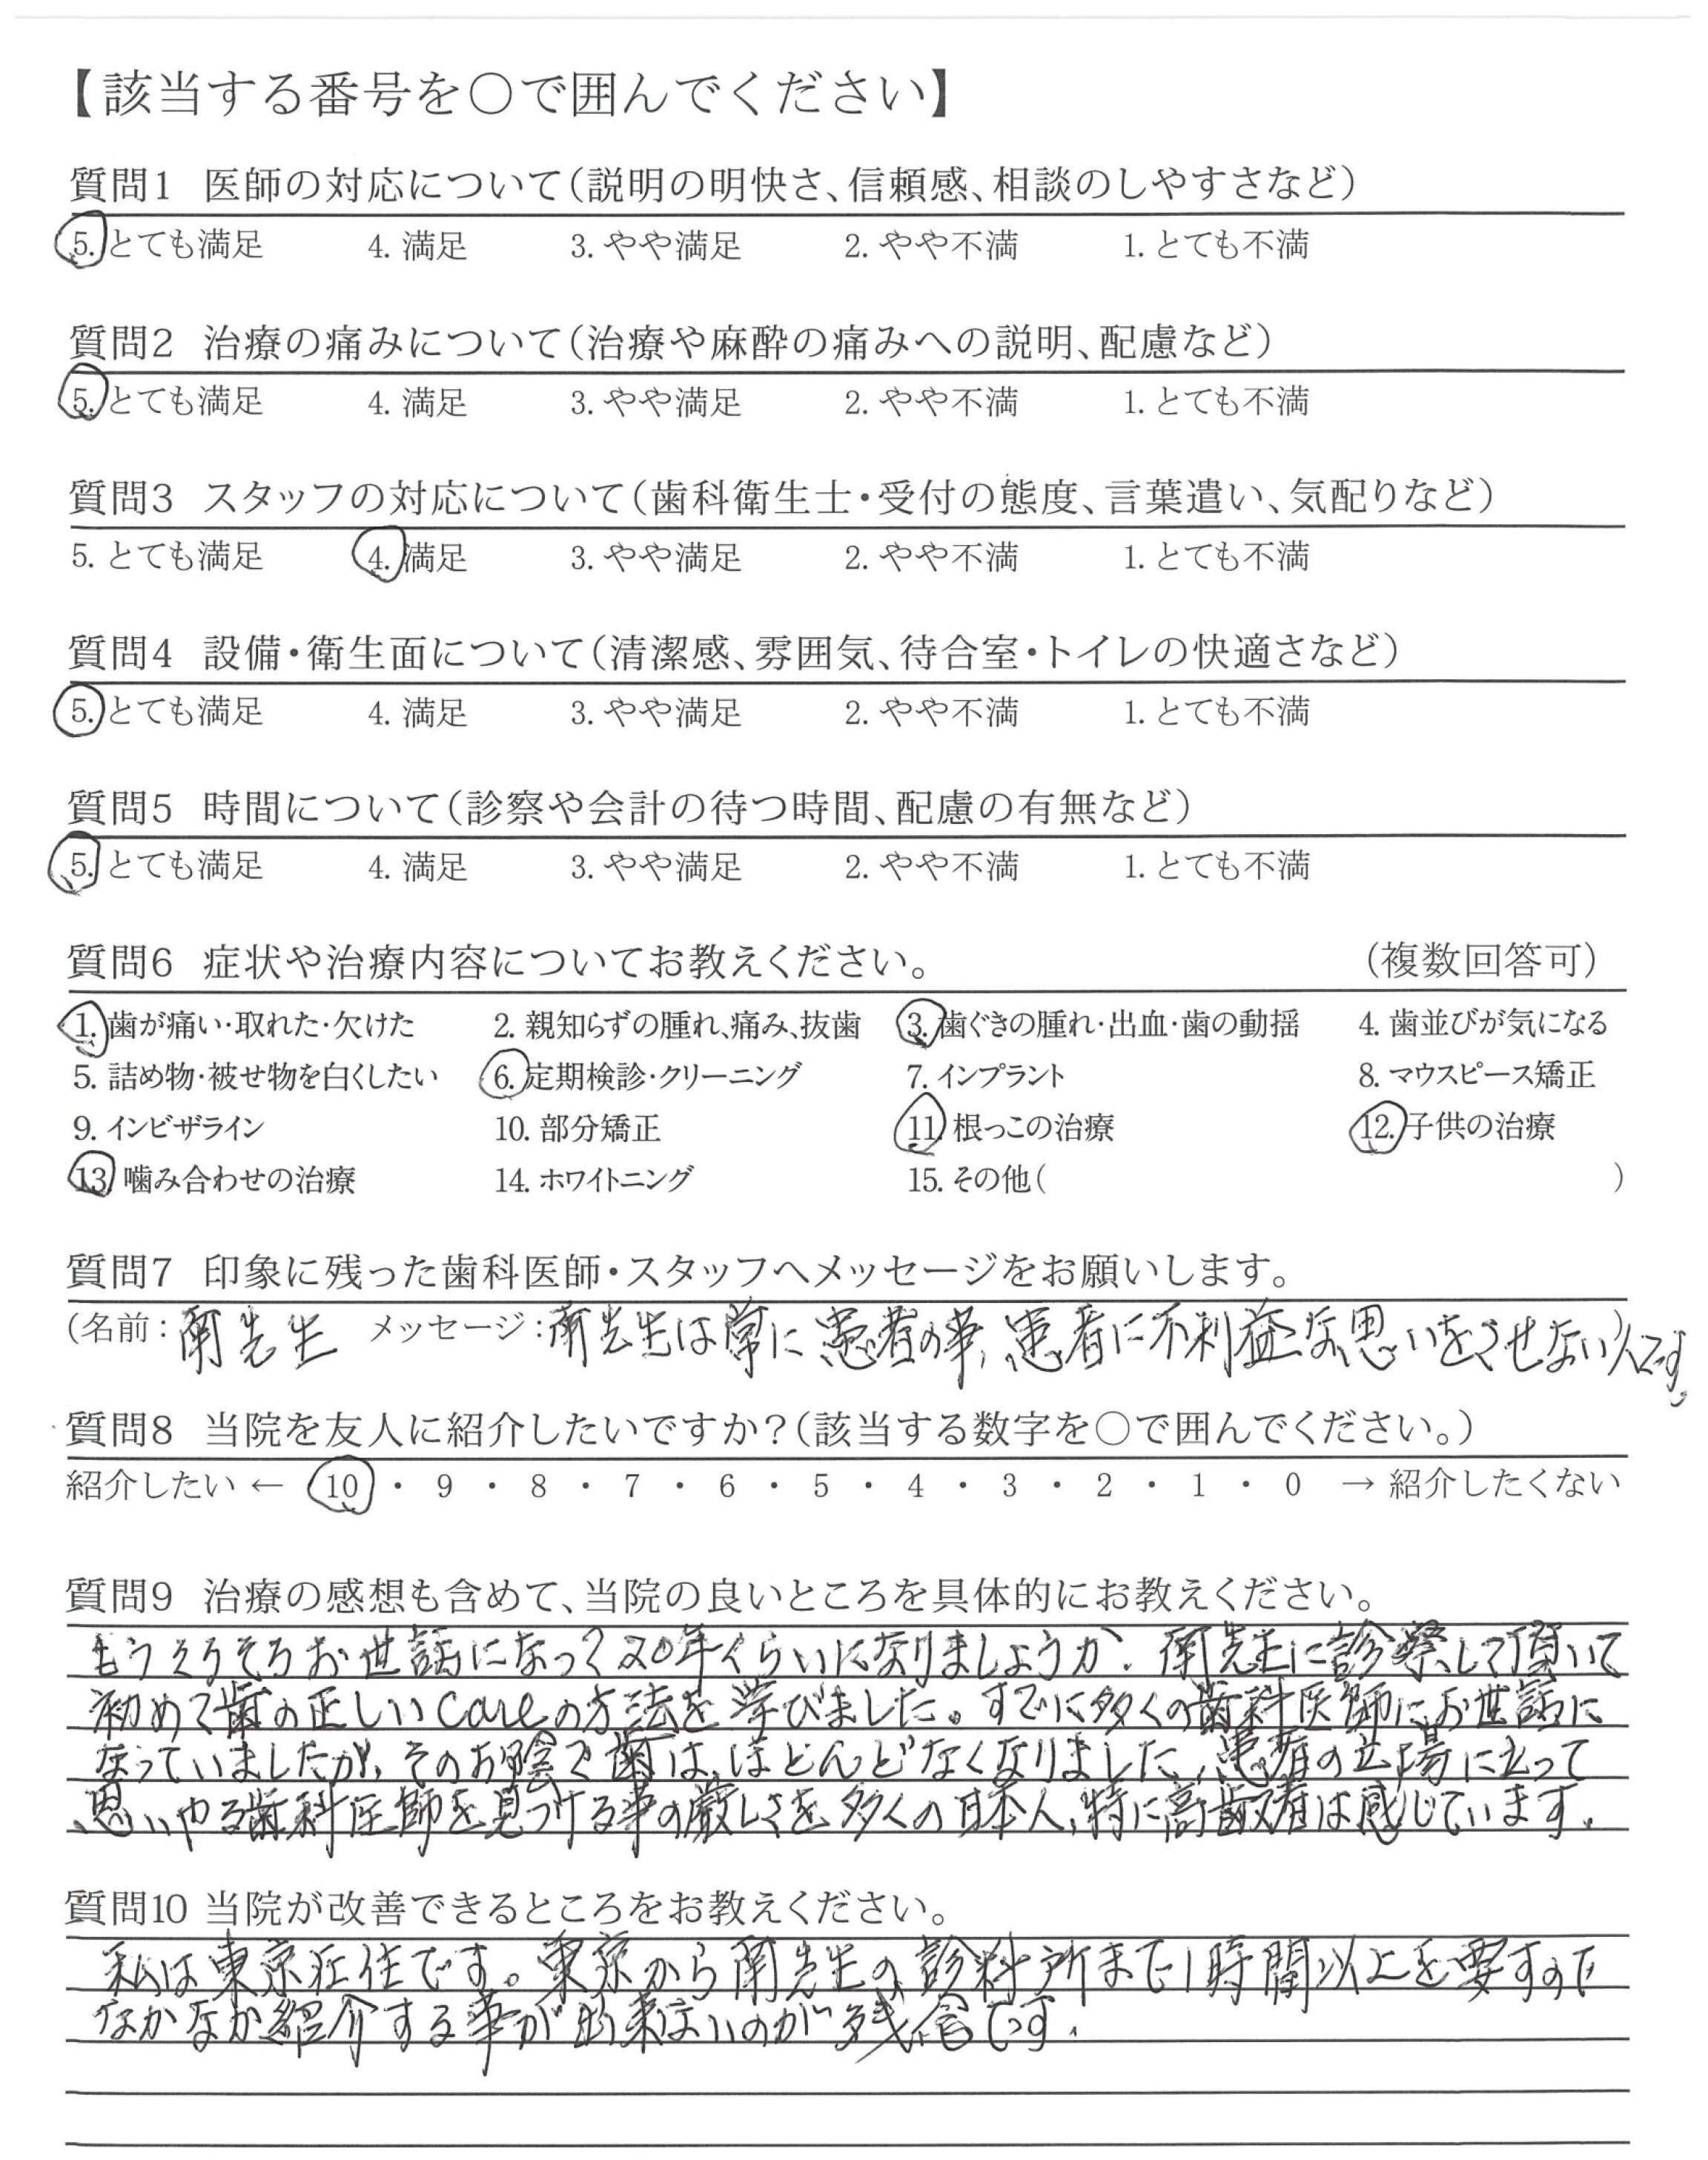 【該当する番号を○で囲んでください】
質問1 医師の対応について（説明の明快さ、信頼感、相談のしやすさなど）
5. とても満足 4. 満足 3. やや満足 2. やや不満 1. とても不満
質問2 治療の痛みについて（治療や麻酔の痛みへの説明、配慮など）
5. とても満足 4. 満足 3. やや満足 2. やや不満 1. とても不満
質問3 スタッフの対応について（歯科衛生士・受付の態度、言葉遣い、気配りなど）
5. とても満足 4. 満足 3. やや満足 2. やや不満 1. とても不満
質問4 設備・衛生面について（清潔感、雰囲気、待合室・トイレの快適さなど）
5. とても満足 4. 満足 3. やや満足 2. やや不満 1. とても不満
質問5 時間について（診察や会計の待つ時間、配慮の有無など）
5. とても満足 4. 満足 3. やや満足 2. やや不満 1. とても不満
質問6 症状や治療内容についてお教えください。 （複数回答可）
1. 歯が痛い・取れた・欠けた 2. 親知らずの腫れ、痛み、抜歯 3. 歯ぐきの腫れ・出血・歯の動揺 4. 歯並びが気になる
5. 詰め物・被せ物を白くしたい 6. 定期検診・クリーニング 7. インプラント 8. マウスピース矯正
9. インビザライン 10. 部分矯正 11. 根っこの治療 12. 子供の治療
13. 噛み合わせの治療 14. ホワイトニング 15. その他（ ）
質問7 印象に残った歯科医師・スタッフへメッセージをお願いします。
（名前：南先生 メッセージ：南先生は常に患者の事、患者に不利益な思いをさせない人です。）
質問8 当院を友人に紹介したいですか？（該当する数字を○で囲んでください。）
紹介したい ← 10 ・ 9 ・ 8 ・ 7 ・ 6 ・ 5 ・ 4 ・ 3 ・ 2 ・ 1 ・ 0 → 紹介したくない
質問9 治療の感想も含めて、当院の良いところを具体的にお教えください。
もうそろそろお世話になって20年くらいになりましょうか。南先生に診察して頂いて
初めて歯の正しいCareの方法を学びました。すでに多くの歯科医師にお世話に
なっていましたが、そのお陰で歯は、ほとんどなくなりました、患者の立場に立って
思いやる歯科医師を見つける事の厳しさを多くの日本人、特に高齢者は感じています。
質問10 当院が改善できるところをお教えください。
私は東京在住です。東京から南先生の診料所まで1時間以上を要すので
なかなか紹介する事が出来ないのが残念です。